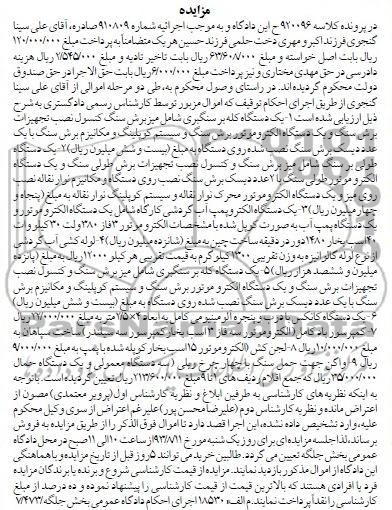 مزایده
در پرونده کلاسه ۹۲۰۰۹۶ ح این دادگاه و به موجب اجرائیه شماره ۹۱۰۸۰۹ صادره، آقای علی سینا
گنجوی فرزند اکبر و مهری دخت حلمی فرزند حسین هر یک متضامناً به پرداخت مبلغ ۱۲۰/۰۰۰/۰۰۰
ریال بابت اصل خواسته و مبلغ ۶۳/۶۰۸/۰۰۰ ریال بابت تاخیر تادیه و مبلغ ۲/۵۴۵/۰۰۰ ریال هزینه
دادرسی در حق مهدی مختاری و نیز پرداخت مبلغ ۶/۰۰۰/۰۰۰ ریال بابت حق الاجرا در حق صندوق
دولت محکوم گردیده‌اند. در راستای وصول محکوم به، طی دو مرحله اموالی از آقای علی سینا
گنجوی از طریق اجرای احکام توقیف که اموال مزبور توسط کارشناس رسمی دادگستری به شرح
ذیل ارزیابی شده است ۱- یک دستگاه کله بر سنگبری شامل میز برش سنگ کنسول نصب تجهیزات
برش سنگ و یک دستگاه الکتروموتور برش سنگ و سیستم کوپلینگ و مکانیزم برش سنگ با یک
عدد دیسک برش سنگ نصب شده روی دستگاه به مبلغ (بیست و شش میلیون ریال) ۲- یک دستگاه
طولی برش سنگ شامل میز برش سنگ و کنسول نصب تجهیزات برش طولی سنگ و یک دستگاه
الکتروموتور طولی سنگ با ۲ عدد دیسک برش سنگ نصب روی دستگاه و مکانیزم نوار نقاله نصب
روی میز و یک دستگاه الکتروموتور محرک نوار نقاله و سیستم کوپلینگ نوار نقاله به مبلغ (پنجاه و
چهار میلیون ریال) ۳- یک دستگاه الکتروپمپ آب گردشی کارگاه شامل یک دستگاه الکتروموتور و
یک دستگاه پمپ آب به صورت کوپل شده با مشخصات الکتروموتور ۳ فاز ۳۸۰ ولت ۳۰ کیلو وات
۴۰ اسب بخار ۱۴۸۰ دور در دقیقه ساخت چین به مبلغ (شانزده میلیون ریال) ۴- لوله کشی آب گردشی
از نوع لوله گالوانیزه به وزن تقریبی ۱۳۰۰ کیلوگرم به قیمت تقریبی هر کیلو ۱۲۰۰۰ ریال به مبلغ (پانزده
میلیون و ششصد هزار ریال) ۵- یک دستگاه کله بر سنگبری شامل میز برش سنگ و کنسول نصب
تجهیزات برش سنگ و یک دستگاه الکتروموتور برش سنگ و سیستم کوپلینگ و مکانیزم برش
سنگ با یک عدد دیسک برش سنگ نصب شده روی دستگاه به مبلغ (بیست و شش میلیون ریال)
۶- یک دستگاه کانکس با درب و پنجره آلومینومی کامل به ابعاد ۲/۵×۴ متر به مبلغ ۲۷/۰۰۰/۰۰۰ ریال
۷- کمپرسور باد کامل (الکتروموتور سه فاز ۳ اسب بخار کمپرسور سه سیلندر ساخت سپاهان به
مبلغ ۱۰/۰۰۰/۰۰۰ ریال ۸- لجن کش (الکتروموتور ۱۵ اسب بخار کوپله شده با پمپ به مبلغ ۹/۰۰۰/۰۰۰
ریال ۹- واگن جهت حمل سنگ با چهار چرخ ریلی (سه دستگاه معمولی و یک دستگاه حمال
۳۵/۰۰۰/۰۰۰ ریال که جمع اقلام ردیف های ۱ تا ۹ مبلغ ۲۱۳/۶۰۰/۰۰۰ ریال تعیین گردیده است. باتوجه
به اینکه نظریه های کارشناسی به طرفین ابلاغ و نظریه کارشناس اول (پرویز معتمدی) مصون از
اعتراض مانده و نظریه کارشناس دوم (علیرضا محسن پور) علیرغم اعتراض از سوی وکیل محکوم
علیه، وارد تشخیص داده نشده، این اجرا قصد دارد تا اموال فوق الذکر را از طریق مزایده به فروش
برساند، لذا جلسه مزایده‌ای برای روز یک شنبه مورخ ۹۳/۸/۱۱ از ساعت ۱۰ الی ۱۱ صبح در محل دادگاه
عمومی بخش جلگه تعیین می گردد. طالبین خرید می توانند ۵ روز قبل از تاریخ مزایده و با هماهنگی
این دادگاه از اموال مذکور بازدید نمایند. مزایده از قیمت کارشناسی شروع و برنده یا برندگان مزایده
فرد یا افرادی هستند که بالاترین قیمت از قیمت کارشناسی را پیشنهاد نموده و ده درصد از مبلغ
کارشناسی را نقداً پرداخت نمایند. م الف: ۱۸۵۳۰ اجرای احکام دادگاه عمومی بخش جلگه ۷/۴۷۳